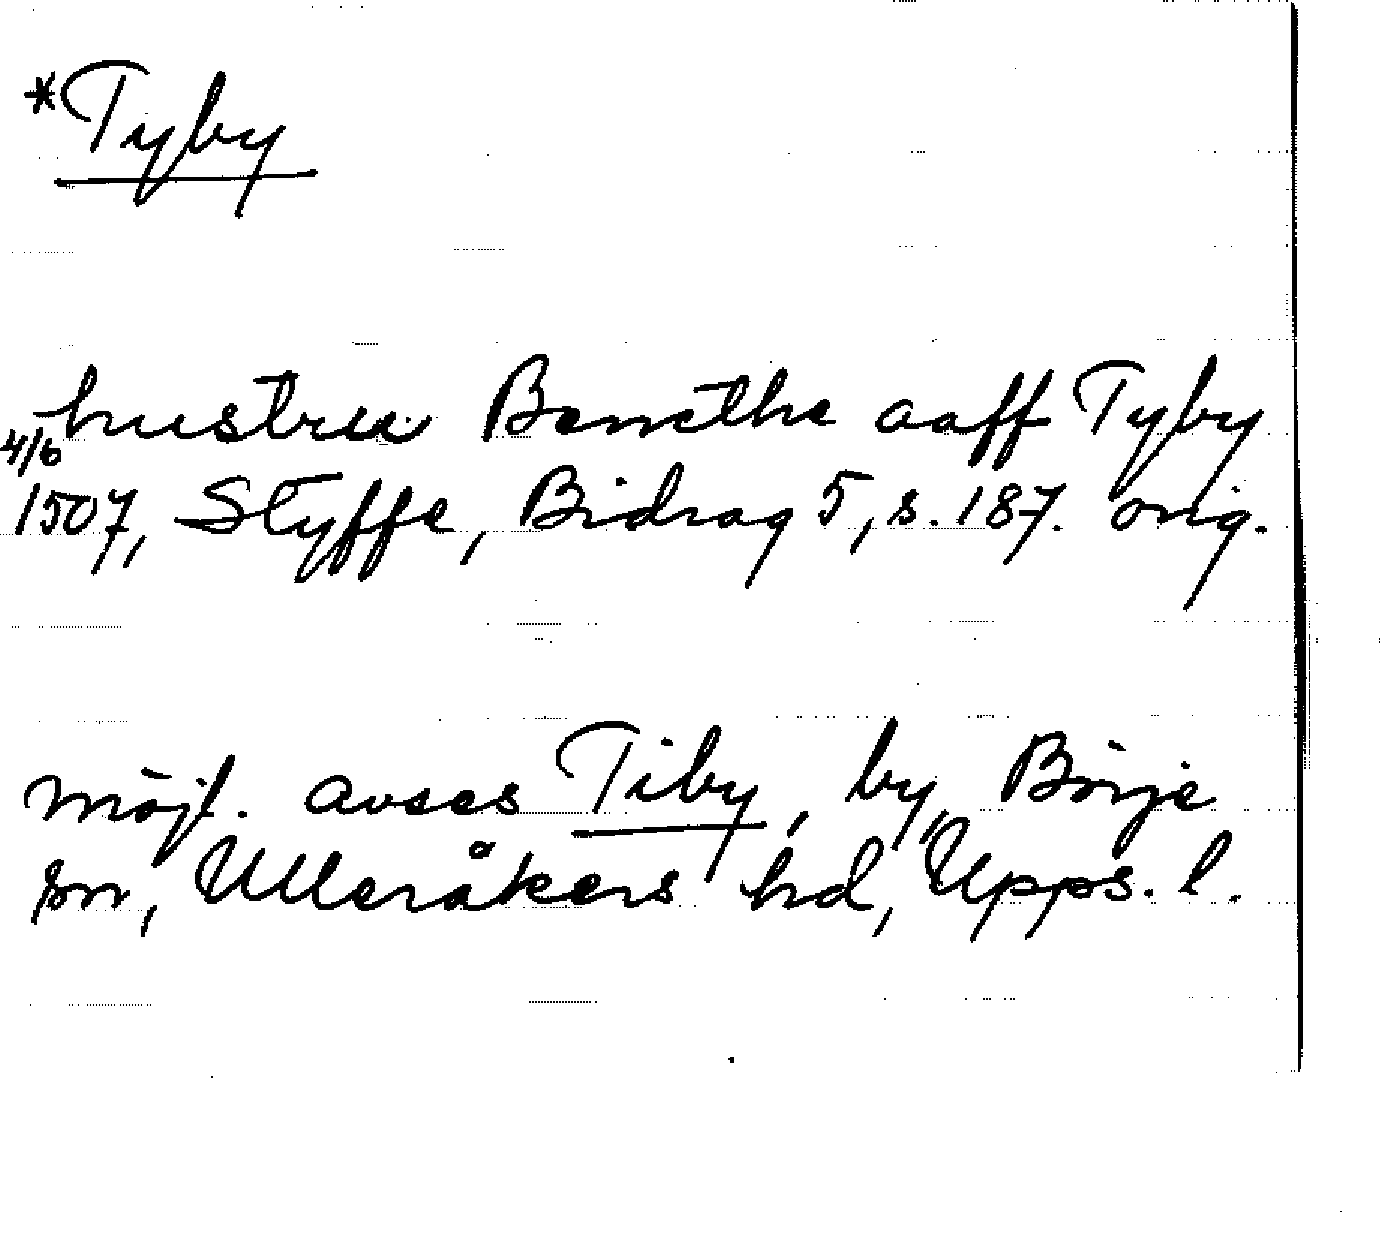 *Tyby
hustrue Benethe aaff Tyby
4/6 1507, Styffe, Bidrag 5, s. 187. orig.
möjl. avses Tiby, by, Börje
sn, Ulleråkers hd, Upps. l.